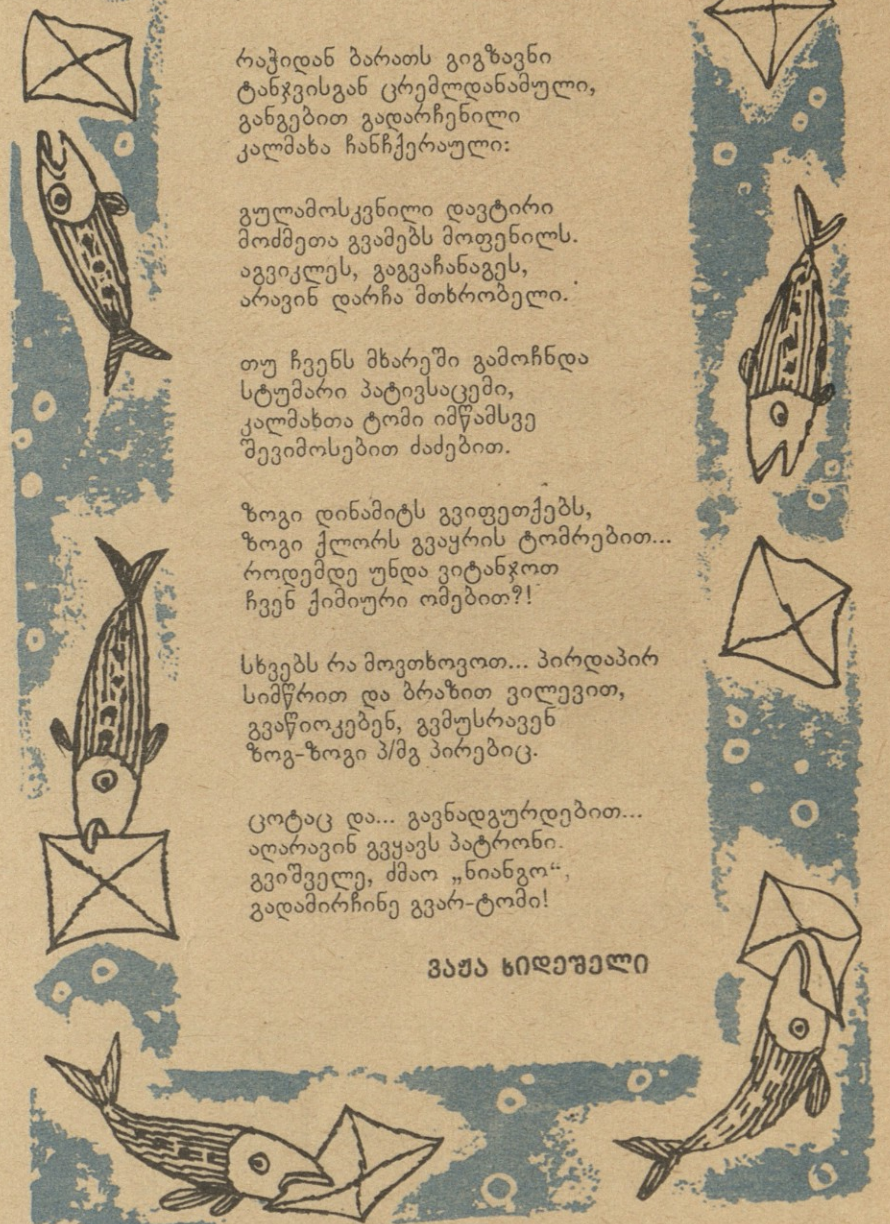 რაჭიდან ბარათს გიგზავნი
ტანჯვისგან ცრემლდანამული,
განგებით გადარჩენილი
კალმახა ჩანჩქერაული:
გულამოსკვნილი დავტირი
მოძმეთა გვამებს მოფენილს.
აგვიკლეს, გაგვაჩანაგეს,
არავინ დარჩა მთხრობელი.
თუ ჩვენს მხარეში გამოჩნდა
სტუმარი პატივსაცემი,
კალმახთა ტომი იმწამსვე
შევიმოსებით ძაძებით.
ზოგი დინამიტს გვიფეთქებს,
ზოგი ქლორს გვაყრის ტომრებით...
როდემდე უნდა ვიტანჯოთ
ჩვენ ქიმიური ომებით?!
სხვებს რა მოვთხოვოთ... პირდაპირ
სიმწრით და ბრაზით ვილევით,
გვაწიოკებენ, გვმუსრავენ
ზოგ-ზოგი პ/მგ პირებიც.
ცოტაც და... გავნადგურდებით...
აღარავინ გვყავს პატრონი.
გვიშველე, ძმაო „ნიანგო“,
გადამირჩინე გვარ-ტომი!
ვაჟა ხიდეშელი